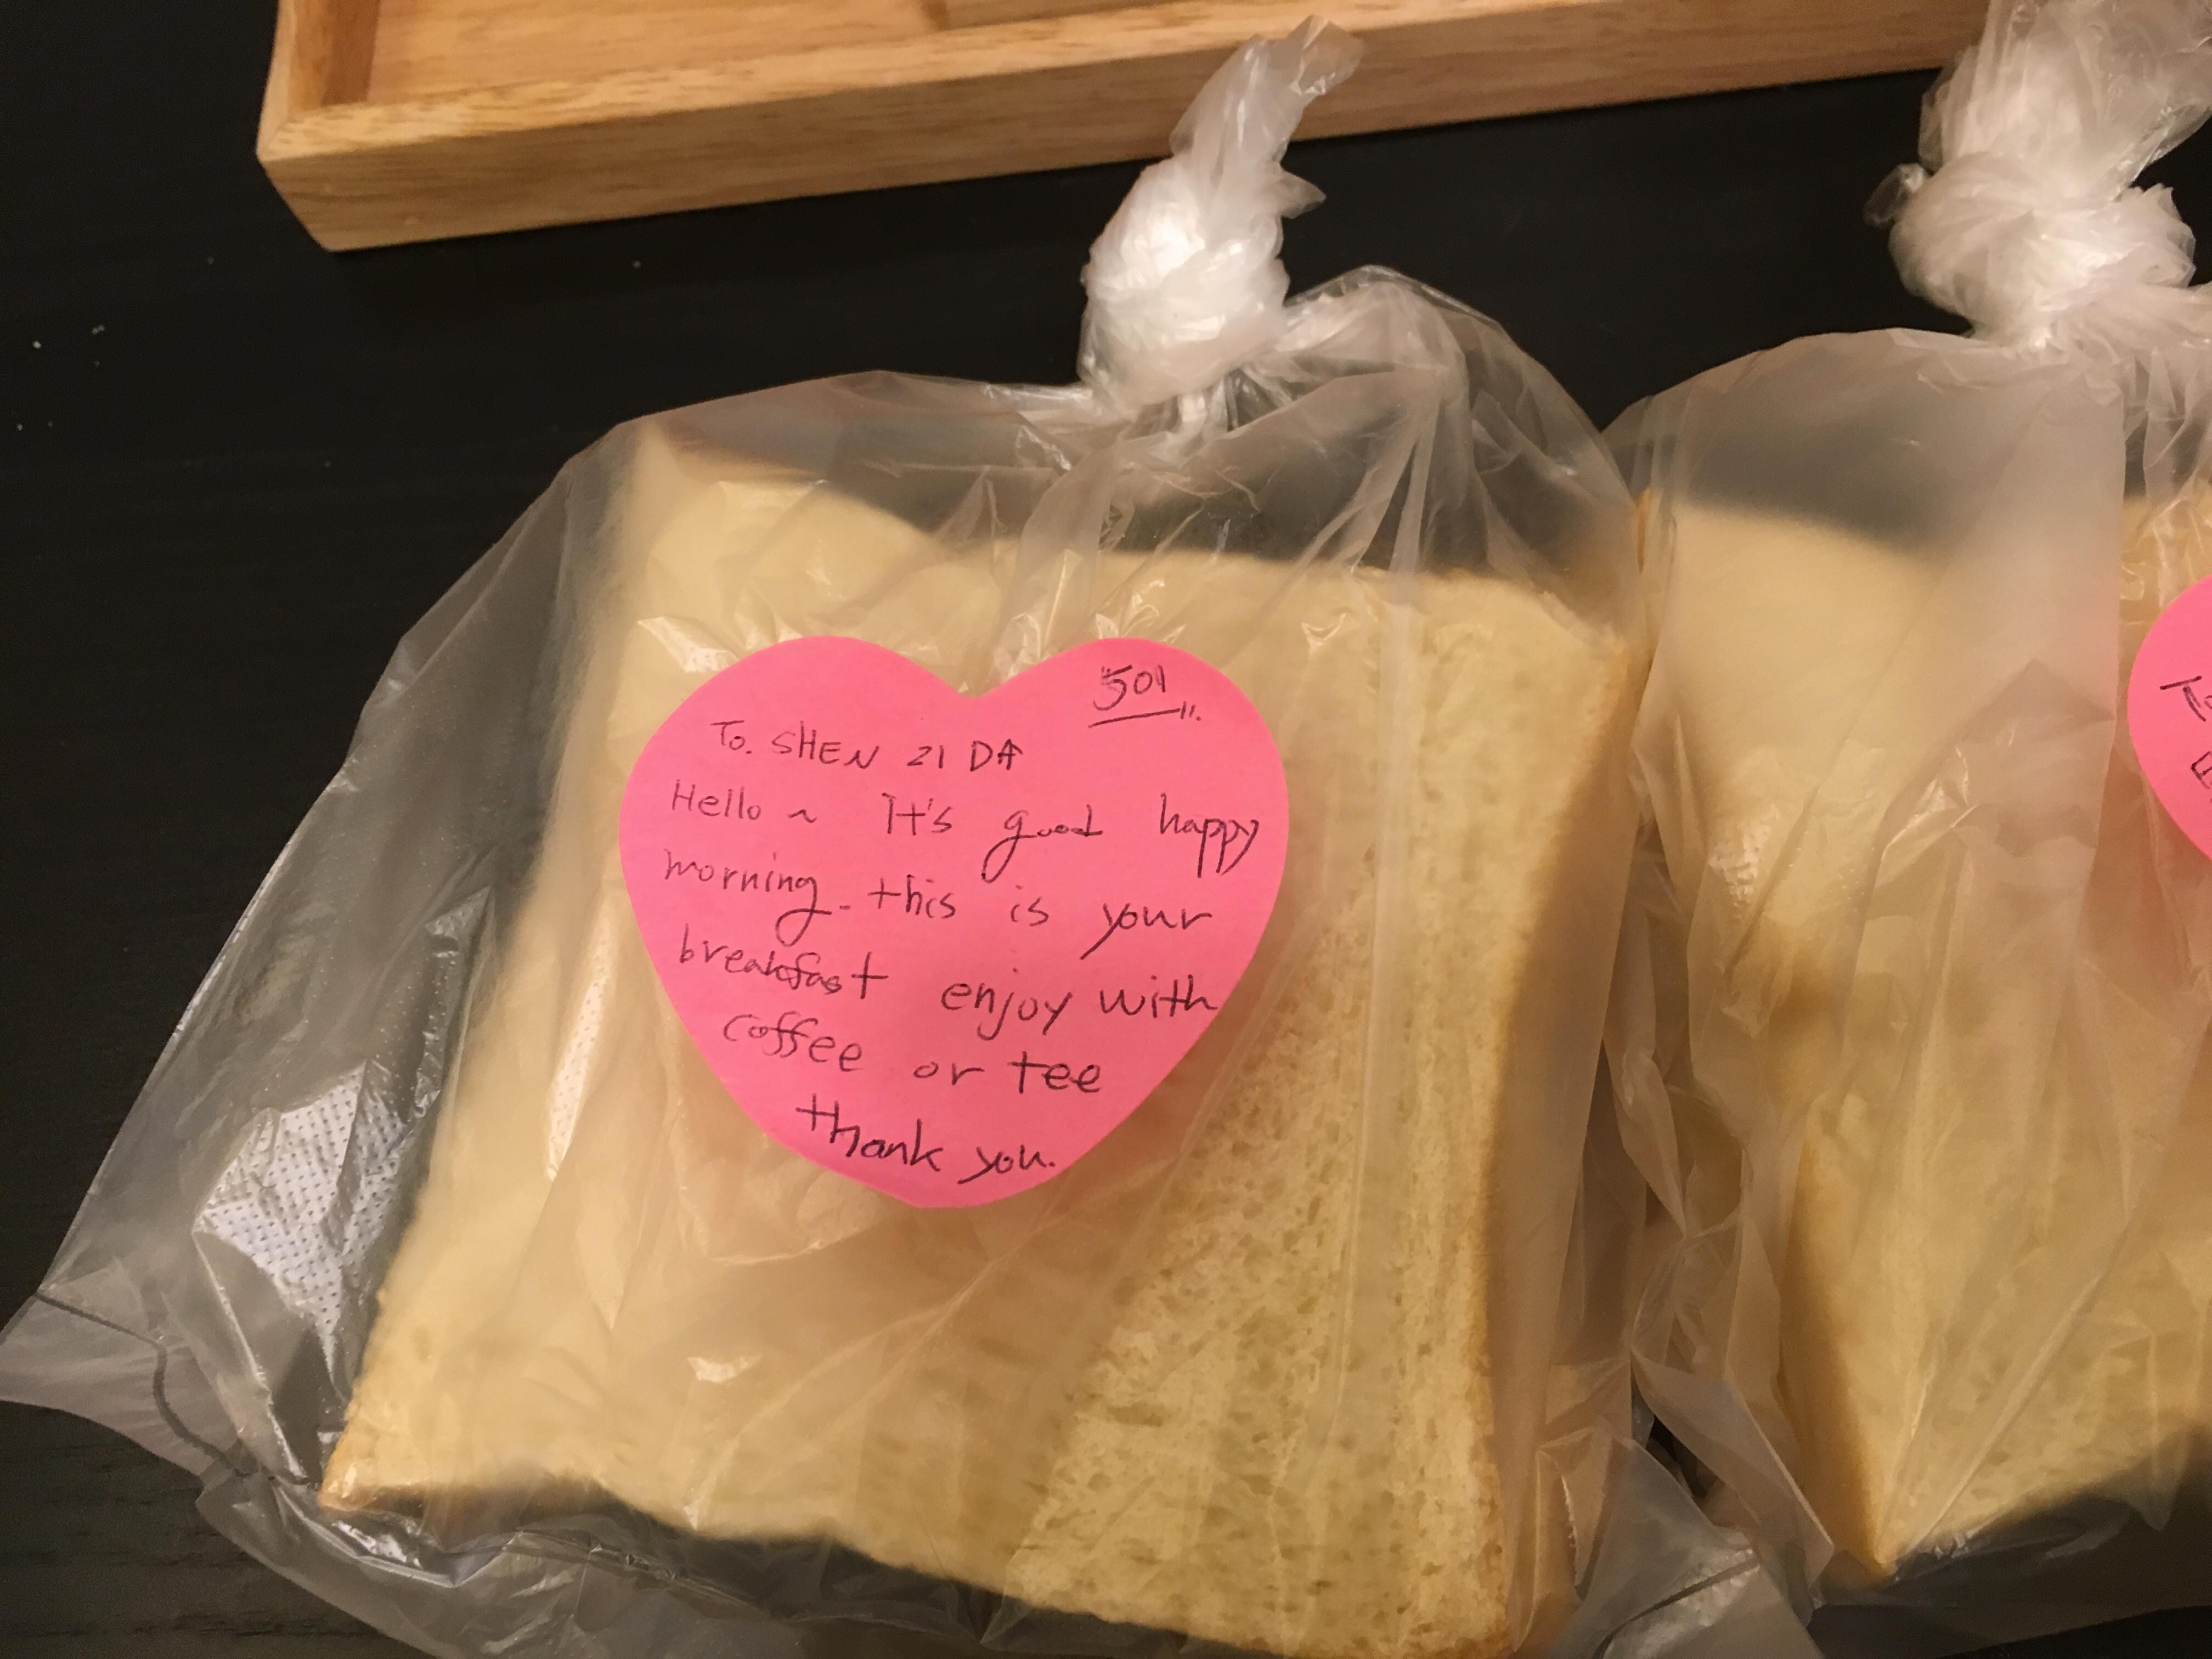 501
To. SHEN ZI DA
Hello ~ It's good happy
morning. this is your
breakfast enjoy with
coffee or tee
thank you.
To